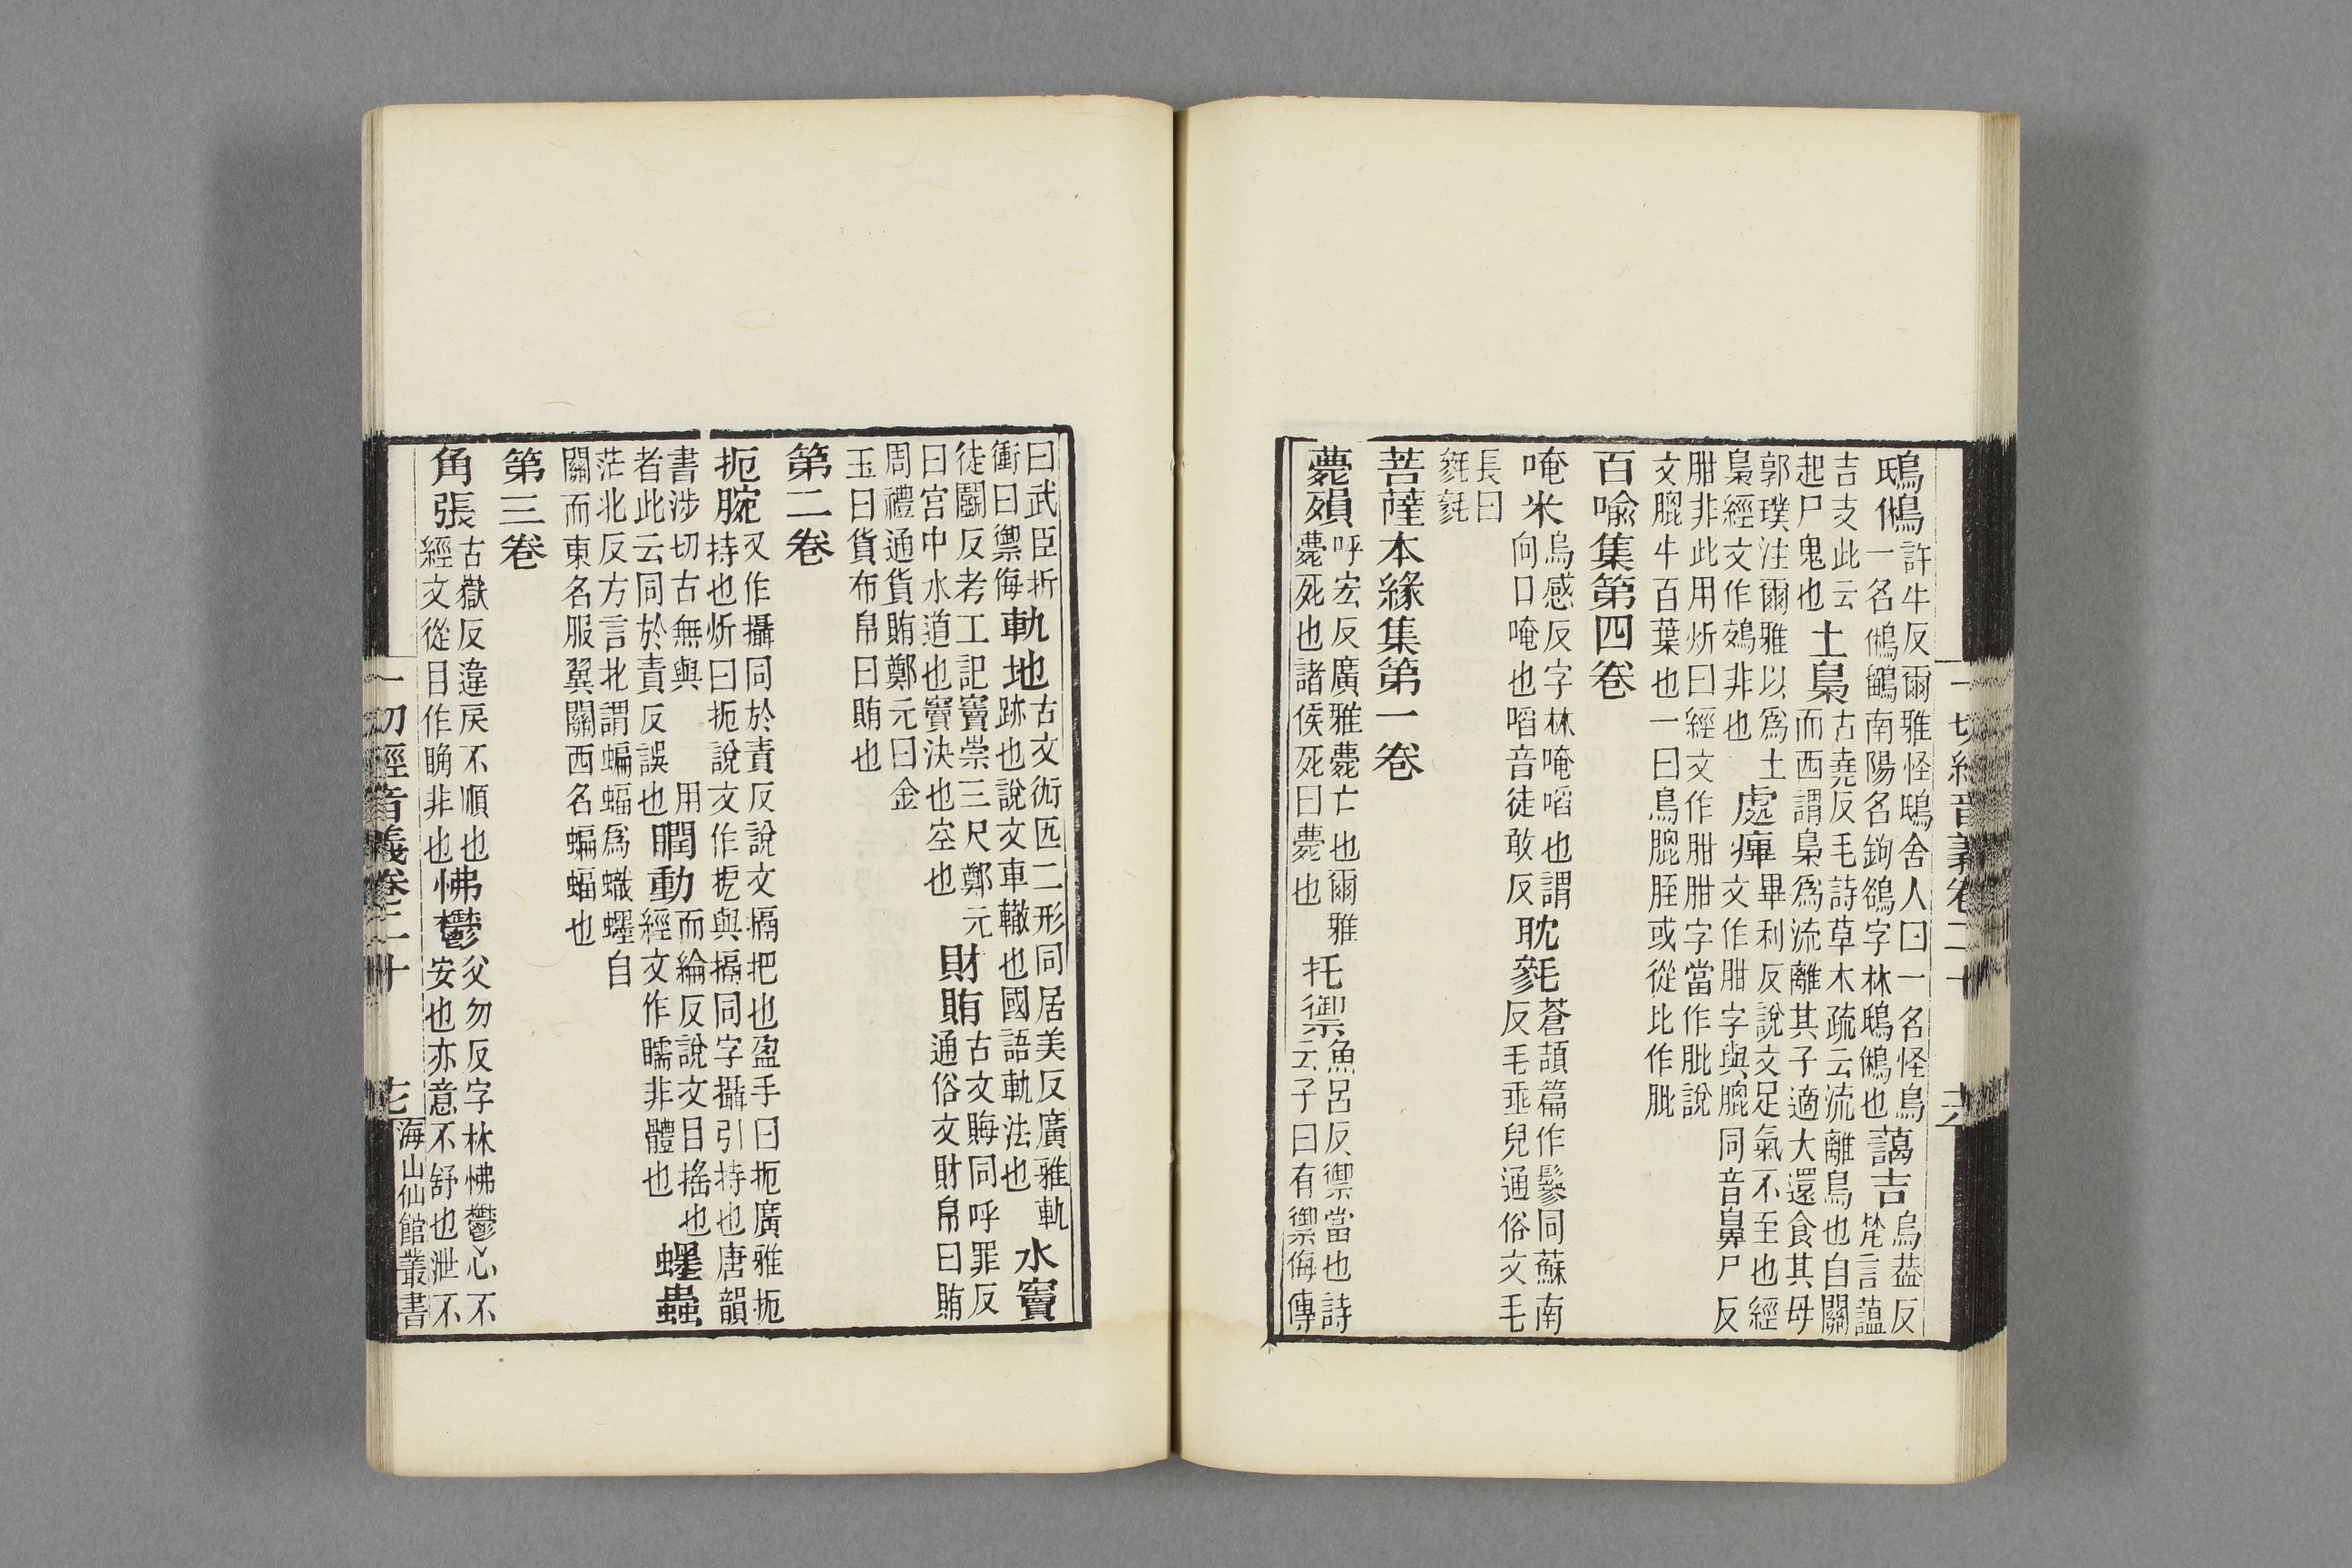 一切經音義卷二十 十六
鵄鵂許牛反爾雅怪鵄舍人曰一名怪鳥
一名鵂鶹南陽名鉤鵅字林鵄鵂也藹吉烏葢反
梵言藴
吉支此云
起尸鬼也土梟古堯反毛詩草木疏云流離鳥也自關
而西謂梟爲流離其子適大還食其母
郭璞注爾雅以爲土
梟經文作鵁非也處痺畢利反說文足氣不至也經
文作字與膍同音鼻尸反
非此用炘曰經文作字當作肶說
文膍牛百葉也一曰鳥膍胵或從比作肶
百喻集第四卷
唵米烏感反字林唵啗也謂
向口唵也啗音徒敢反耽毿蒼頡篇作鬖同蘇南
反毛垂皃通俗文毛
長曰
毿毿
菩薩本緣集第一卷
薨殞呼宏反廣雅薨亡也爾雅
薨死也諸侯死曰薨也托禦魚呂反禦當也詩
云子曰有禦侮傳
曰武臣折
衝曰禦侮軌地古文𨋕匭二形同居美反廣雅軌
跡也說文車轍也國語軌法也水竇
徒鬭反考工記竇崇三尺鄭元
曰宮中水道也竇決也空也財賄古文賄同呼罪反
通俗文財帛曰賄
周禮通貨賄鄭元曰金
玉曰貨布帛曰賄也
第二卷
扼腕又作搹同於責反說文搹把也盈手曰扼廣雅扼
持也炘曰扼說文作㧖與搹同字攝引持也唐韻
書涉切古無與用
者此云同於責反誤也瞤動而綸反說文目搖也
經文作瞤非體也蠼蟲
茫北反方言北謂蝙蝠爲蟙䘃自
關而東名服翼關西名蝙蝠也
第三卷
角張古嶽反違戾不順也
經文從目作睊非也怫鬱父勿反字林怫鬱心不
安也亦意不舒也泄不
一切經音義卷二十 十七 海山仙館叢書